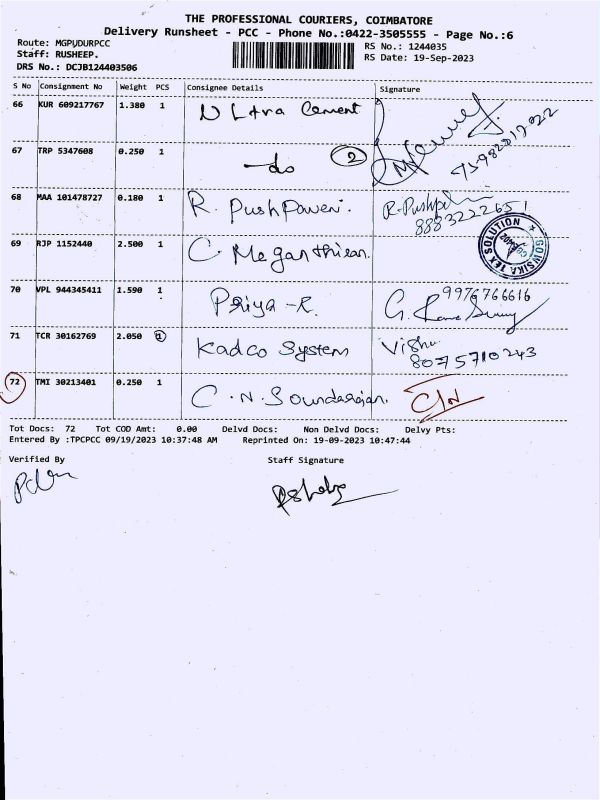 THE PROFESSIONAL COURIERS, COIMBATORE
Delivery Runsheet - PCC - Phone No.:0422-3505555 - Page No.:6
Route: MGPUDURPCC
Staff: RUSHEEP.
DRS No.: DCJB124403506
RS No.: 1244035
RS Date: 19-Sep-2023
S No Consignment No Weight PCS Consignee Details Signature
66 KUR 609217767 1.380 1 Ultra Cement
67 TRP 5347608 0.250 1 do 2
68 MAA 101478727 0.180 1 R. Pushpaveni. R. Pushpa
8883222651
69 RJP 1152440 2.500 1 C. Meganthiran. GOWSIKA TEX SOLUTION
70 VPL 944345411 1.590 1 Priya - R. 9976766616
71 TCR 30162769 2.050 1 Kadco System Vishu
8075710243
72 TMI 30213401 0.250 1 C. N. Soundarajan. C/N
Tot Docs: 72 Tot COD Amt: 0.00 Delvd Docs: Non Delvd Docs: Delvy Pts:
Entered By :TPCPCC 09/19/2023 10:37:48 AM Reprinted On: 19-09-2023 10:47:44
Verified By Staff Signature